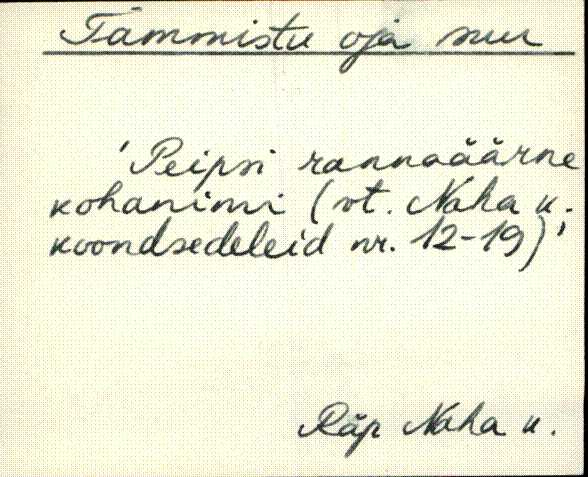 Tammistu oja suu
'Peipsi rannaäärne
kohanimi (vt. Naha k.
koondsedeleid nr. 12-19)'
Räp Naha k.